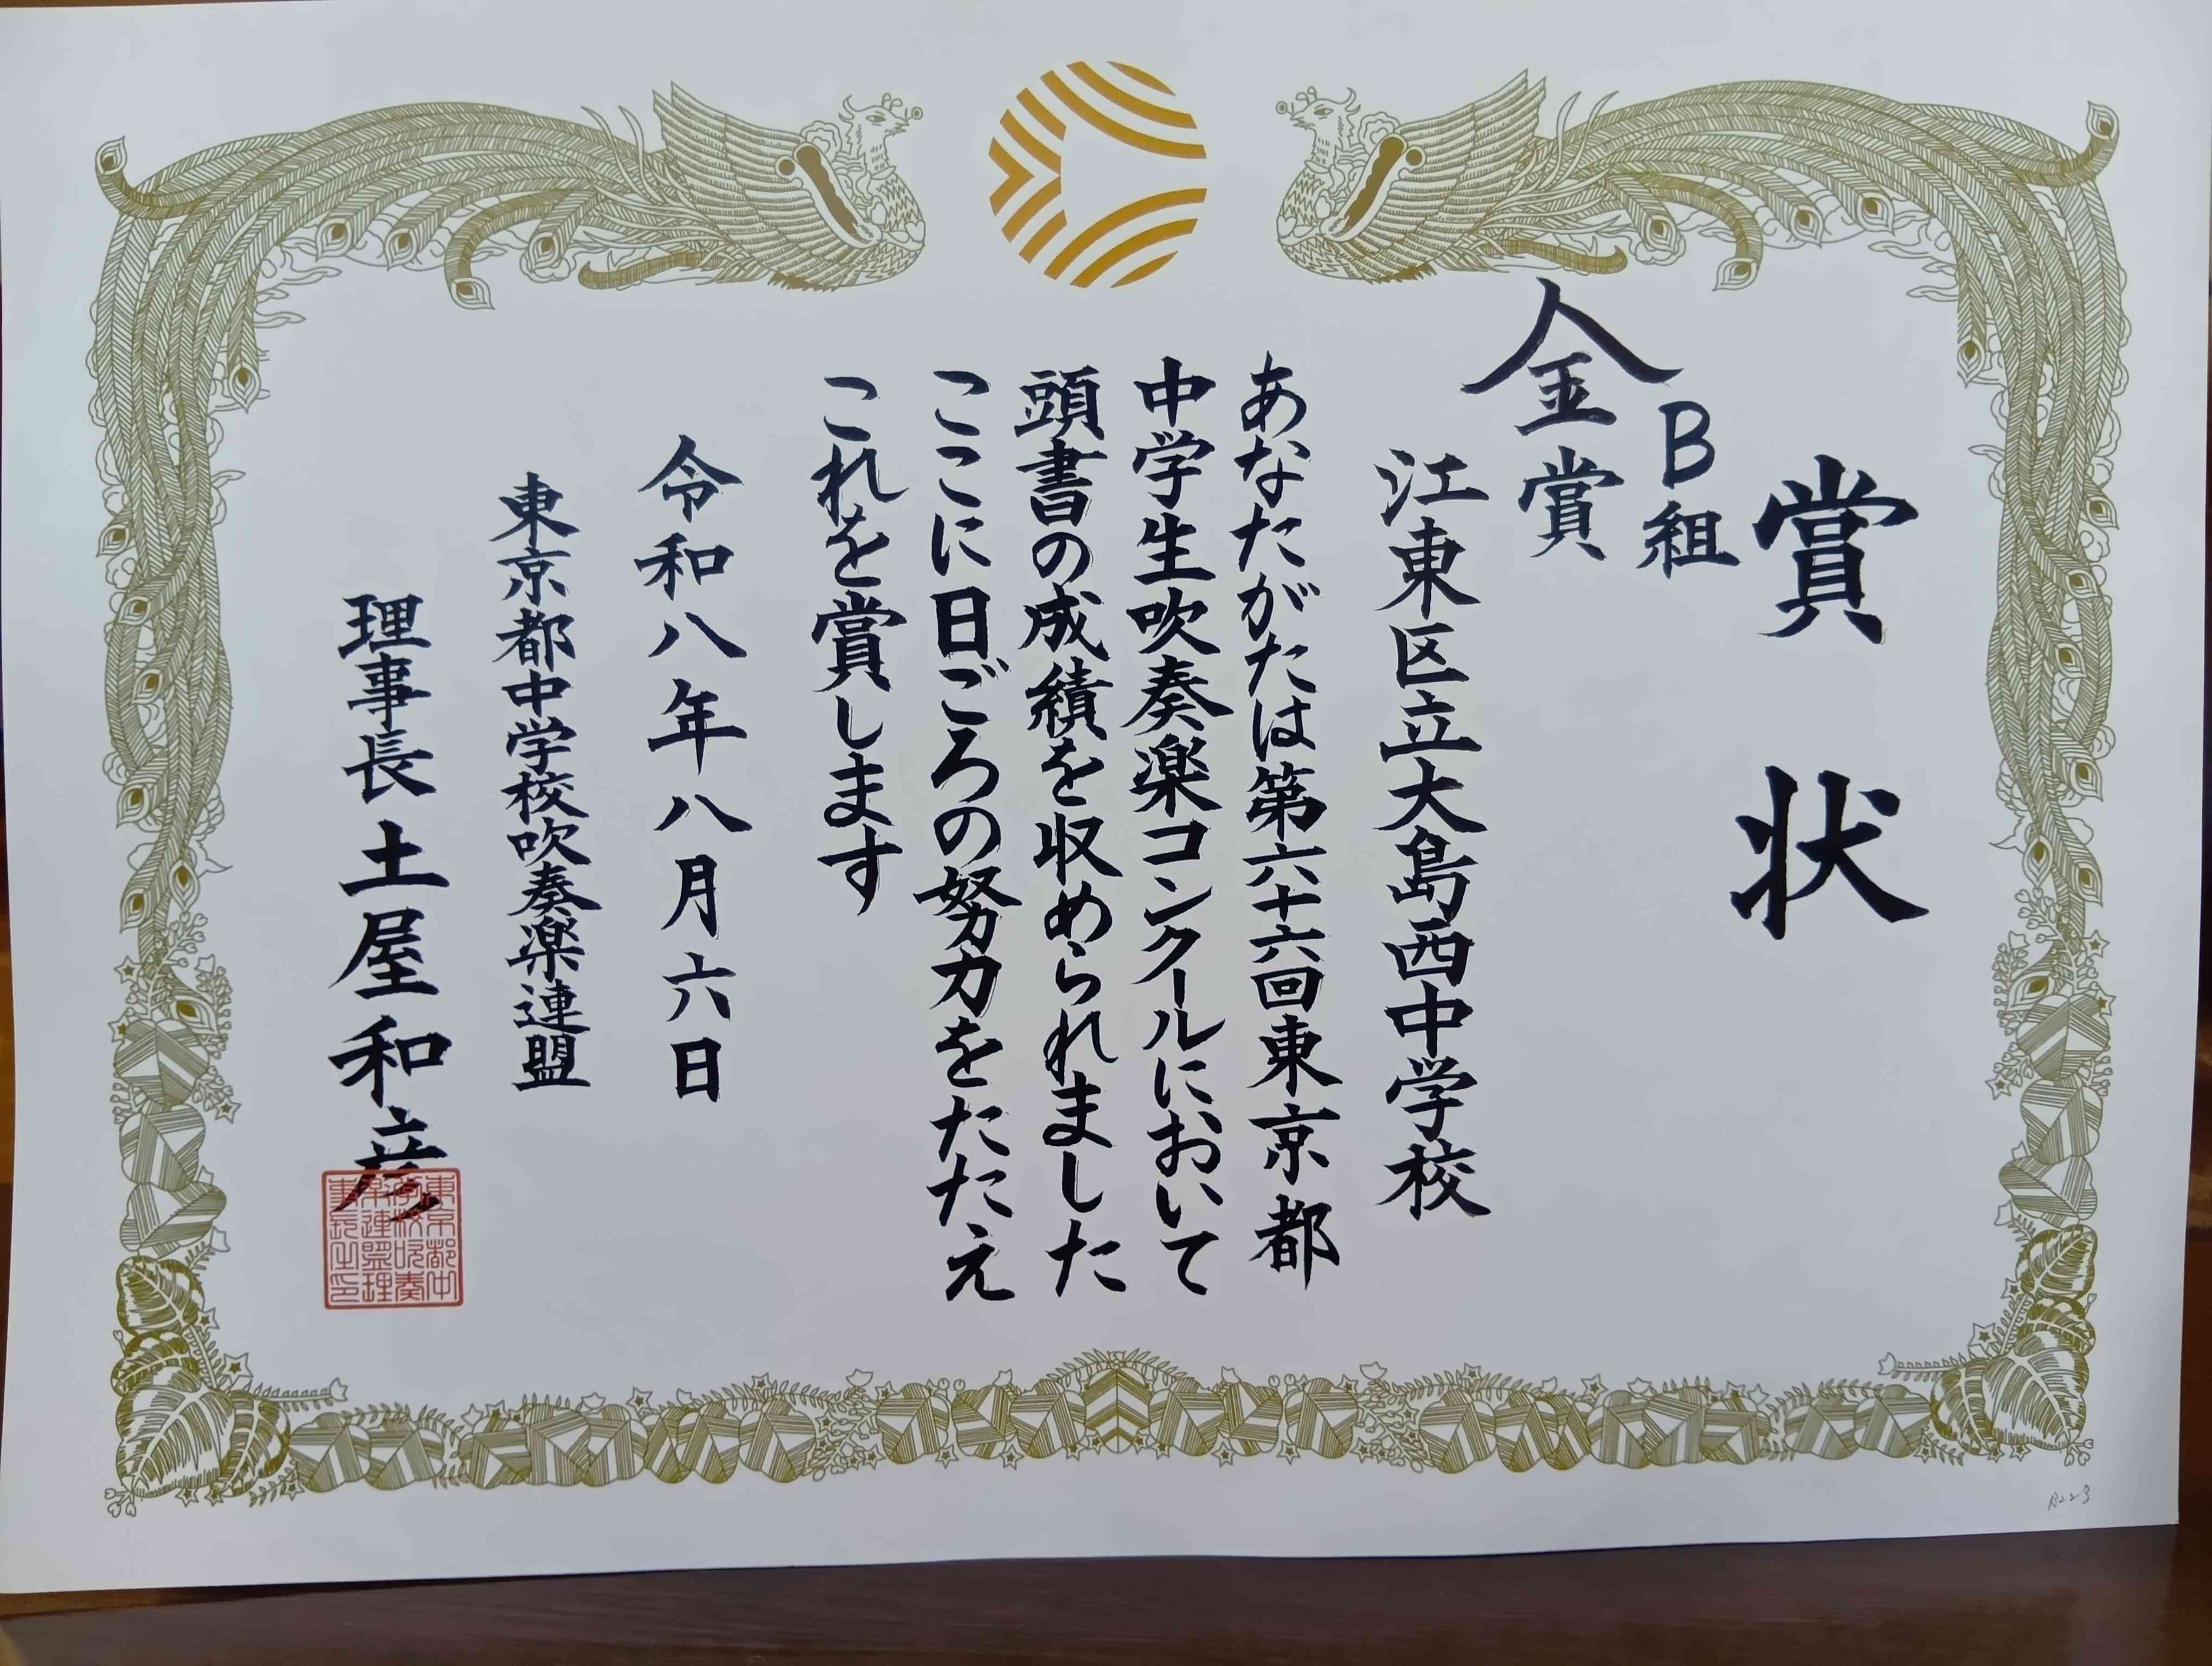 賞状
B組
金賞
江東区立大島西中学校
あなたがたは第六十六回東京都
中学生吹奏楽コンクールにおいて
頭書の成績を収められました
ここに日ごろの努力をたたえ
これを賞します
令和八年八月六日
東京都中学校吹奏楽連盟
理事長 土屋和彦
東京都中学校吹奏楽連盟理事長之印